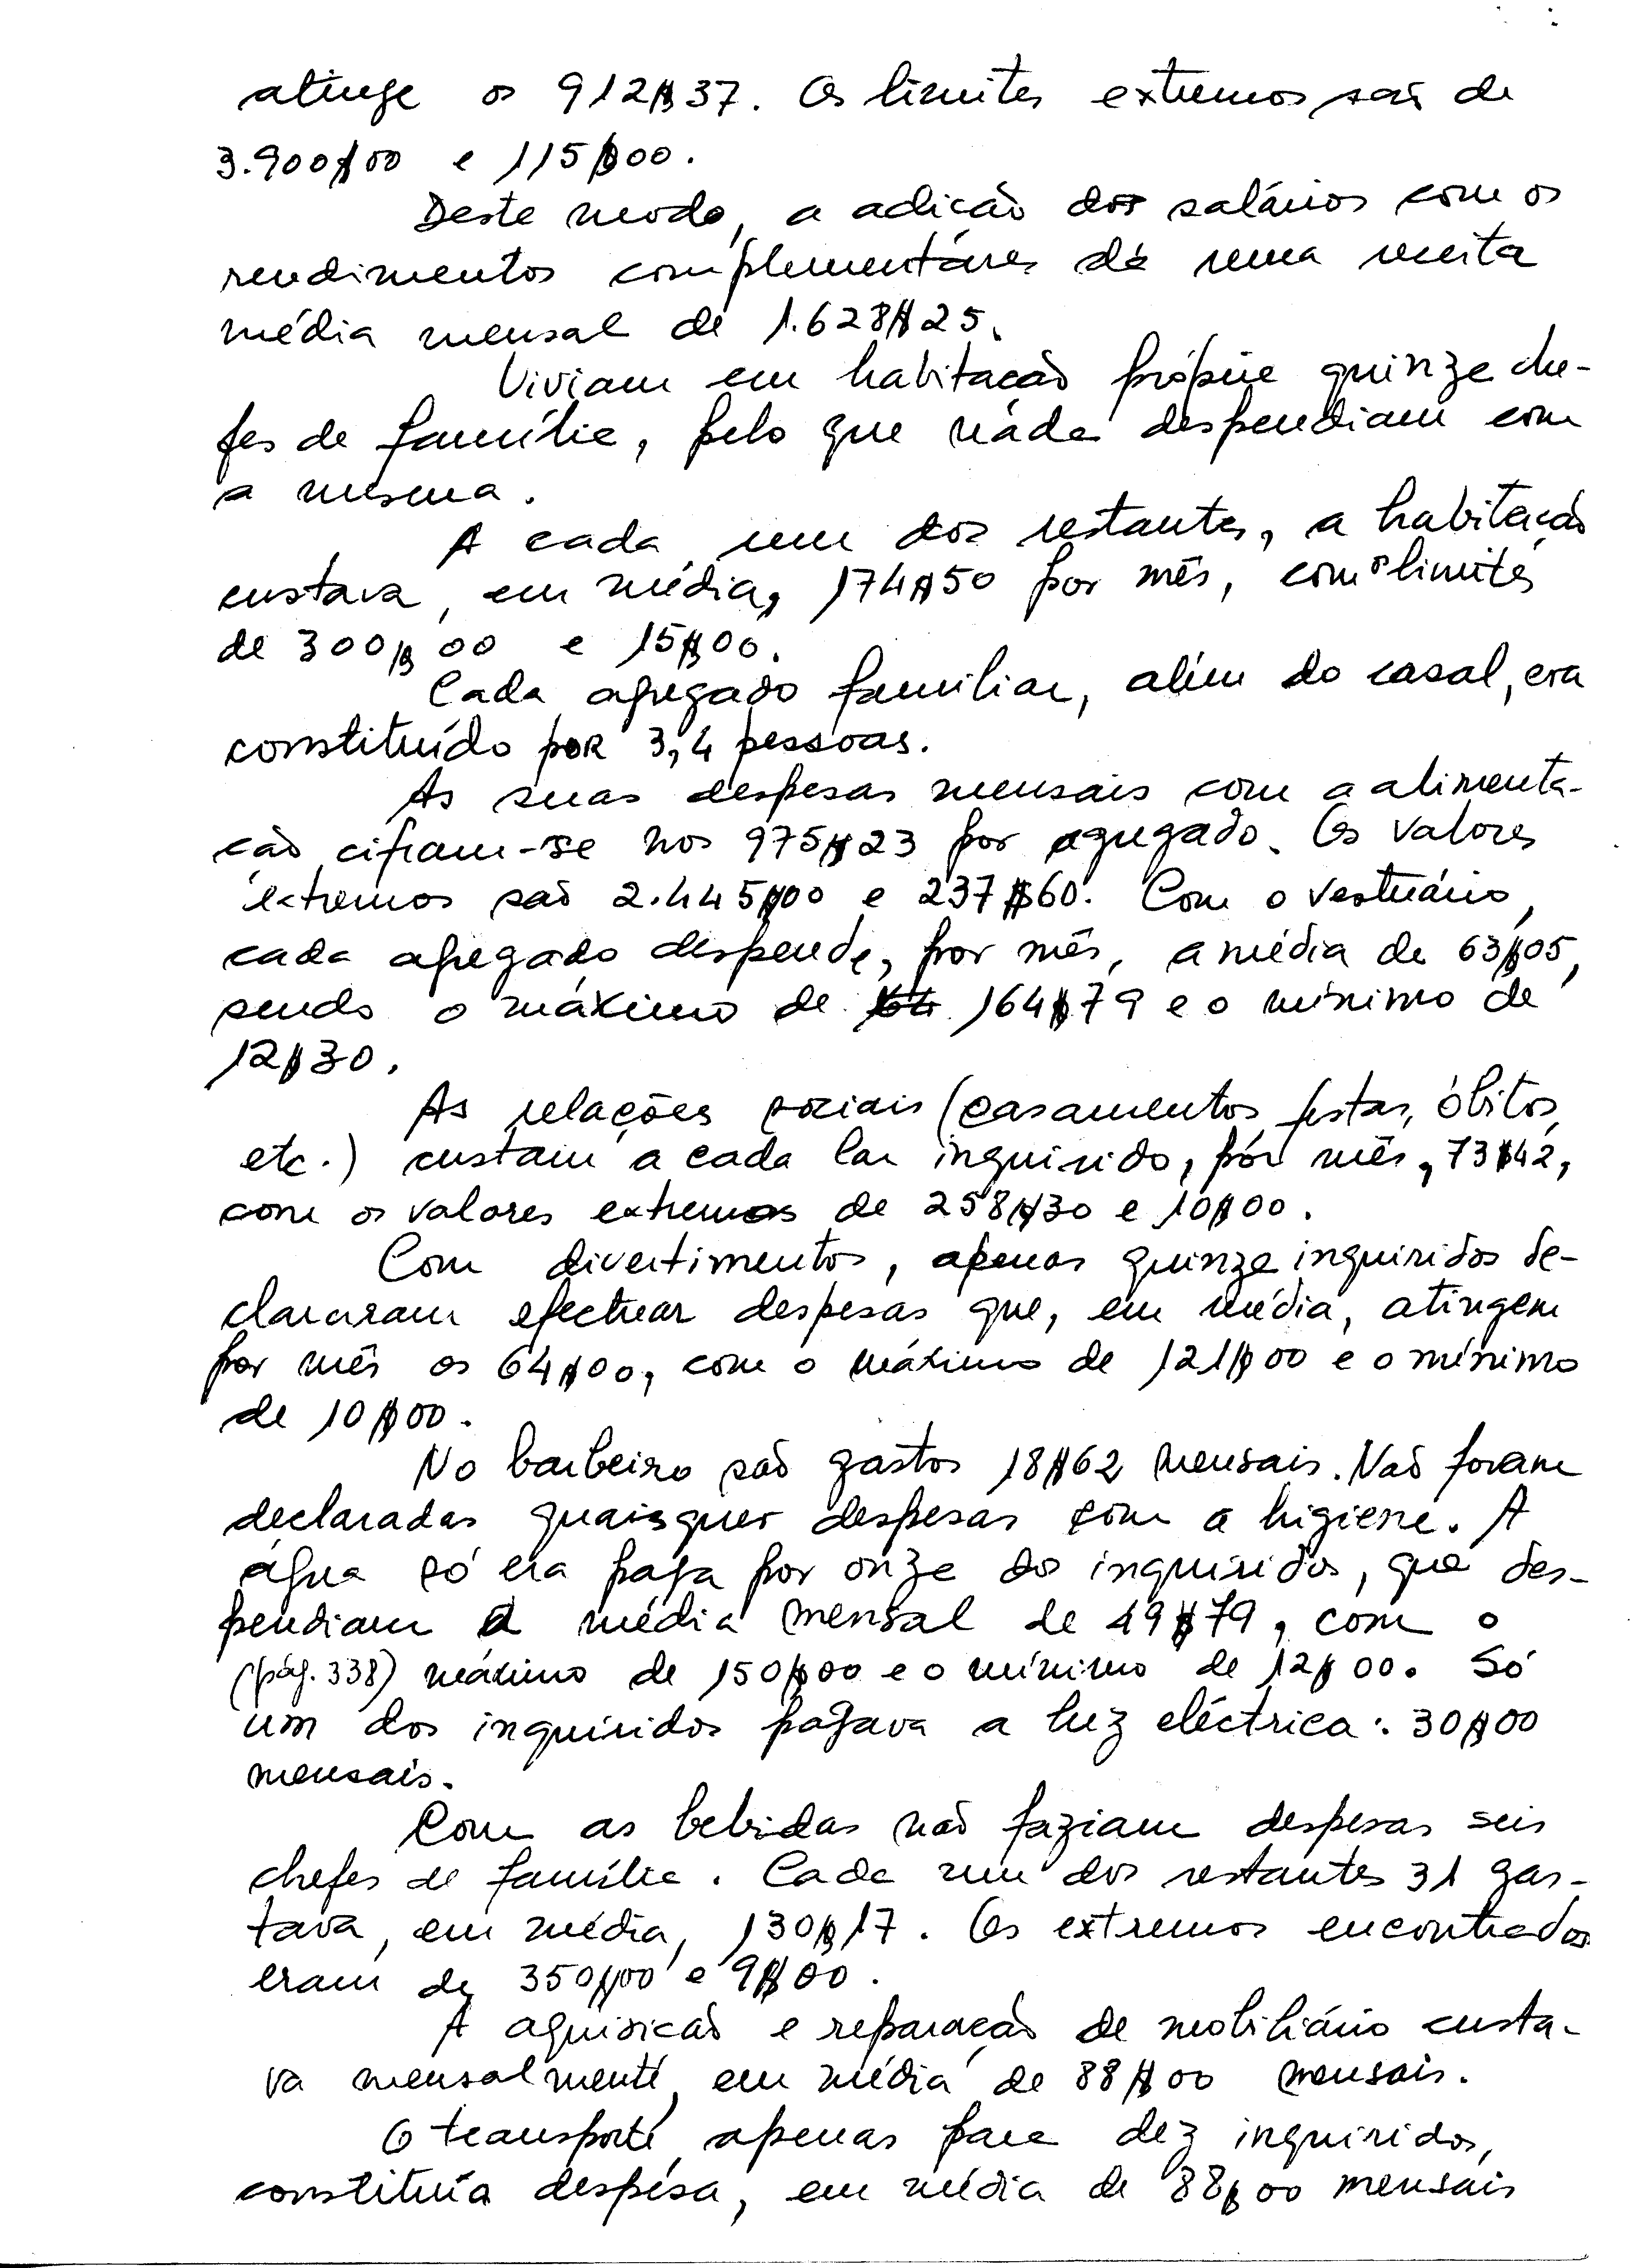 atinge os 912$37. Os limites extremos são de
3.900$00 e 115$00.
Deste modo, a adição dos salários com os
rendimentos complementares dá uma receita
média mensal de 1.628$25.
Viviam em habitação própria quinze che-
fes de família, pelo que nada despendiam com
a mesma.
A cada um dos restantes, a habitação
custava, em média, 174$50 por mês, com os limites
de 300$00 e 15$00.
Cada agregado familiar, além do casal, era
constituído por 3,4 pessoas.
As suas despesas mensais com a alimenta-
ção cifram-se nos 975$23 por agregado. Os valores
extremos são 2.445$00 e 237$60. Com o vestuário,
cada agregado despende, por mês, a média de 63$05,
sendo o máximo de 164$79 e o mínimo de
12$30.
As relações sociais (casamentos, festas, óbitos,
etc.) custam a cada lar inquirido, por mês, 73$42,
com os valores extremos de 258$30 e 10$00.
Com divertimentos, apenas quinze inquiridos de-
clararam efectuar despesas que, em média, atingem
por mês os 64$00, com o máximo de 121$00 e o mínimo
de 10$00.
No barbeiro são gastos 18$62 mensais. Não foram
declaradas quaisquer despesas com a higiene. A
água só era paga por onze dos inquiridos, que des-
pendiam a média mensal de 49$79, com o
(pág. 338) máximo de 150$00 e o mínimo de 12$00. Só
um dos inquiridos pagava a luz eléctrica: 30$00
mensais.
Com as bebidas não faziam despesas seis
chefes de família. Cada um dos restantes 31 gas-
tava, em média, 130$17. Os extremos encontrados
eram de 350$00 e 9$00.
A aquisição e reparação de mobiliário custa-
va mensalmente, em média de 88$00 mensais.
O transporte, apenas para dez inquiridos,
constituía despesa, em média de 88$00 mensais